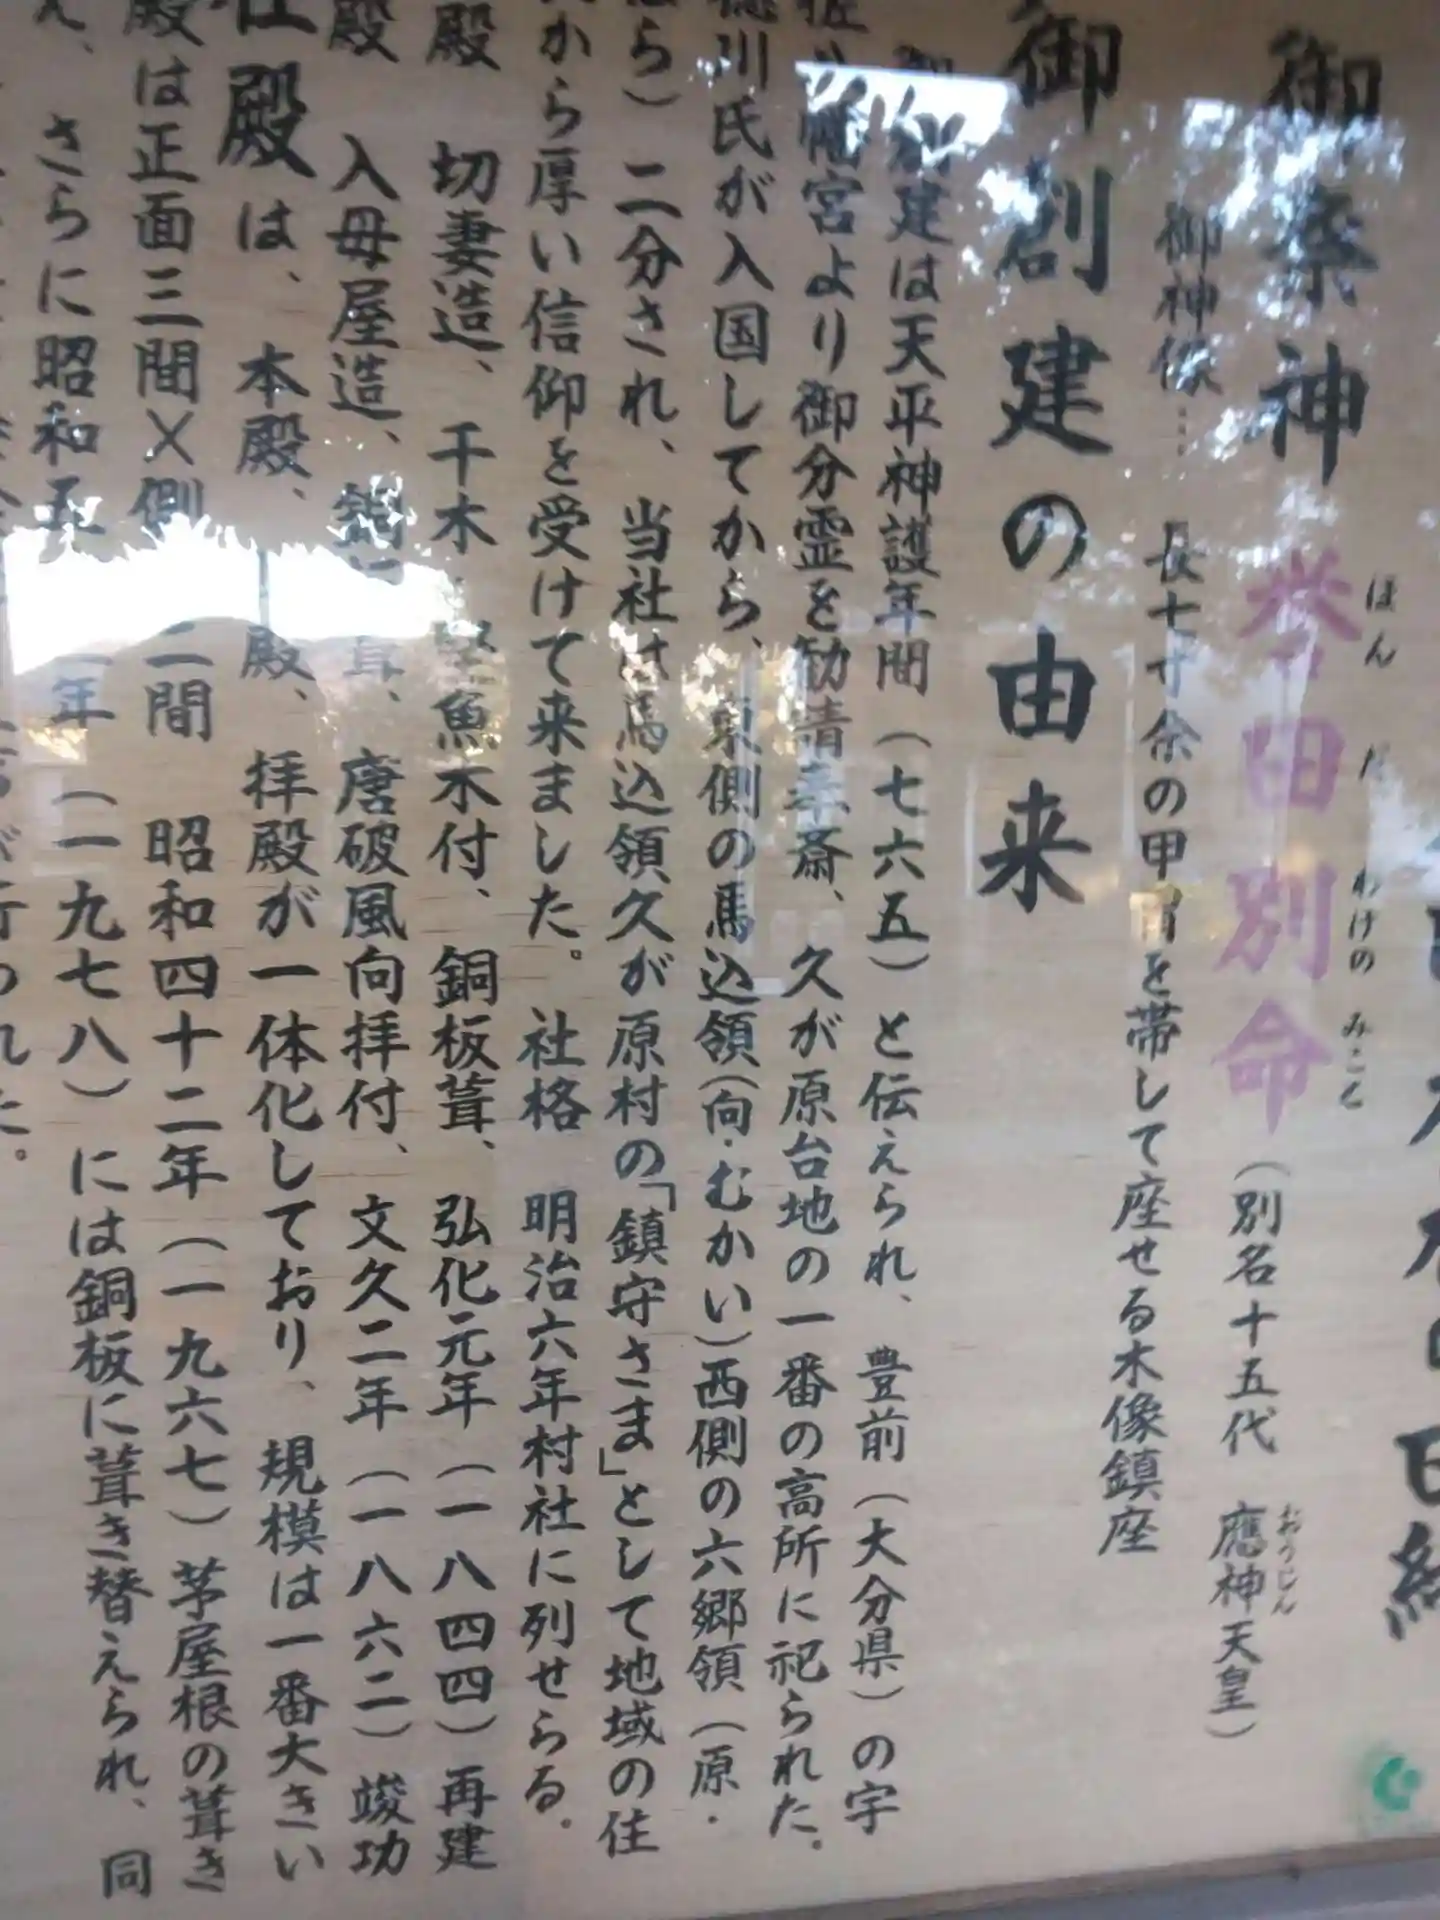 御祭神 誉田別命（別名十五代 應神天皇）
ほん だ わけの みこと
おうじん
御神像… 長七寸余の甲冑を帯して座せる木像鎮座
御創建の由来
建は天平神護年間（七六五）と伝えられ、豊前（大分県）の宇
佐八幡宮より御分霊を勧請奉斎、久が原台地の一番の高所に祀られた。
徳川氏が入国してから、東側の馬込領（向・むかい）西側の六郷領（原・
ら）二分され、当社は馬込領久が原村の「鎮守さま」として地域の住
から厚い信仰を受けて来ました。社格 明治六年村社に列せらる。
殿 切妻造、千木・堅魚木付、銅板葺、弘化元年（一八四四）再建
殿 入母屋造、銅板葺、唐破風向拝付、文久二年（一八六二）竣功
社殿は、本殿、 殿、拝殿が一体化しており、規模は一番大きい
殿は正面三間×側 二間 昭和四十二年（一九六七）茅屋根の葺き
え、さらに昭和五 年（一九七八）には銅板に葺き替えられ、同
が行われた。